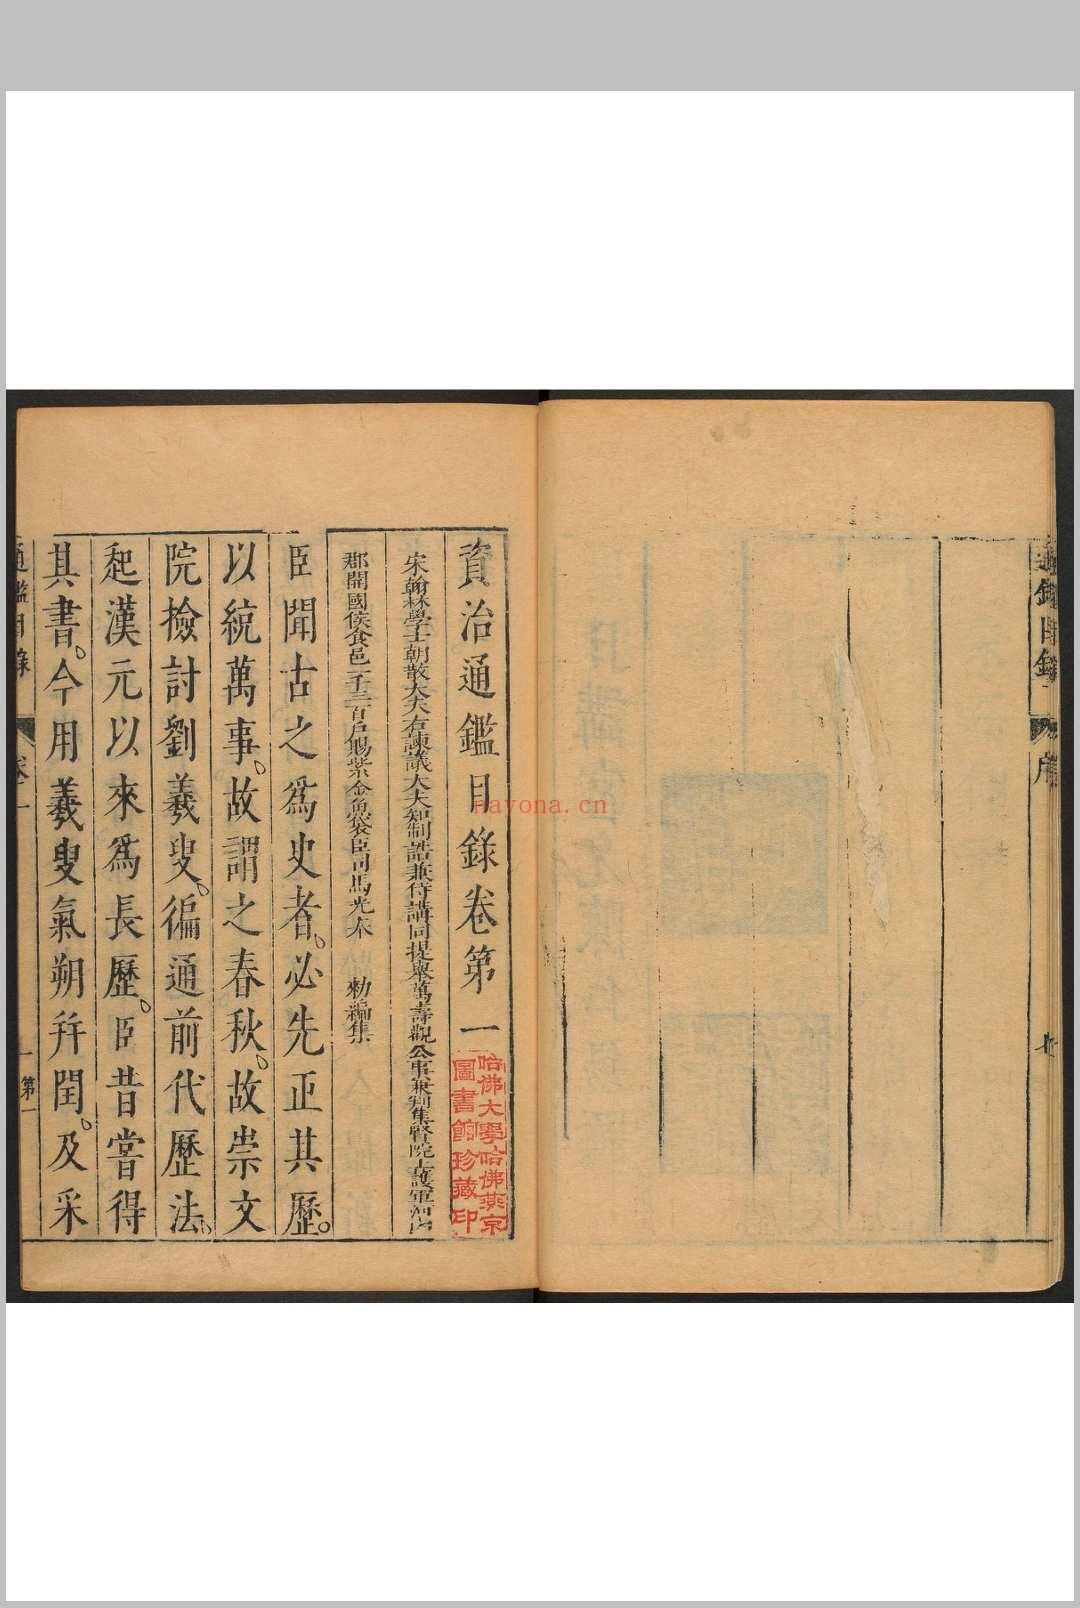 通鑑目錄
序
資治通鑑目錄卷第一
宋翰林學士朝散大夫右諫議大夫知制誥兼侍講同提舉萬壽觀公事兼判集賢院上護軍河內
郡開國侯食邑一千三百戶賜紫金魚袋臣司馬光奉　勑編集
臣聞古之爲史者必先正其歷
以統萬事故謂之春秋故崇文
院撿討劉羲叟徧通前代歷法
起漢元以來爲長歷臣昔嘗得
其書今用羲叟氣朔并閏及采
通鑑目錄
卷一
第一
哈佛大學哈佛燕京
圖書館珍藏印
nayona.cn